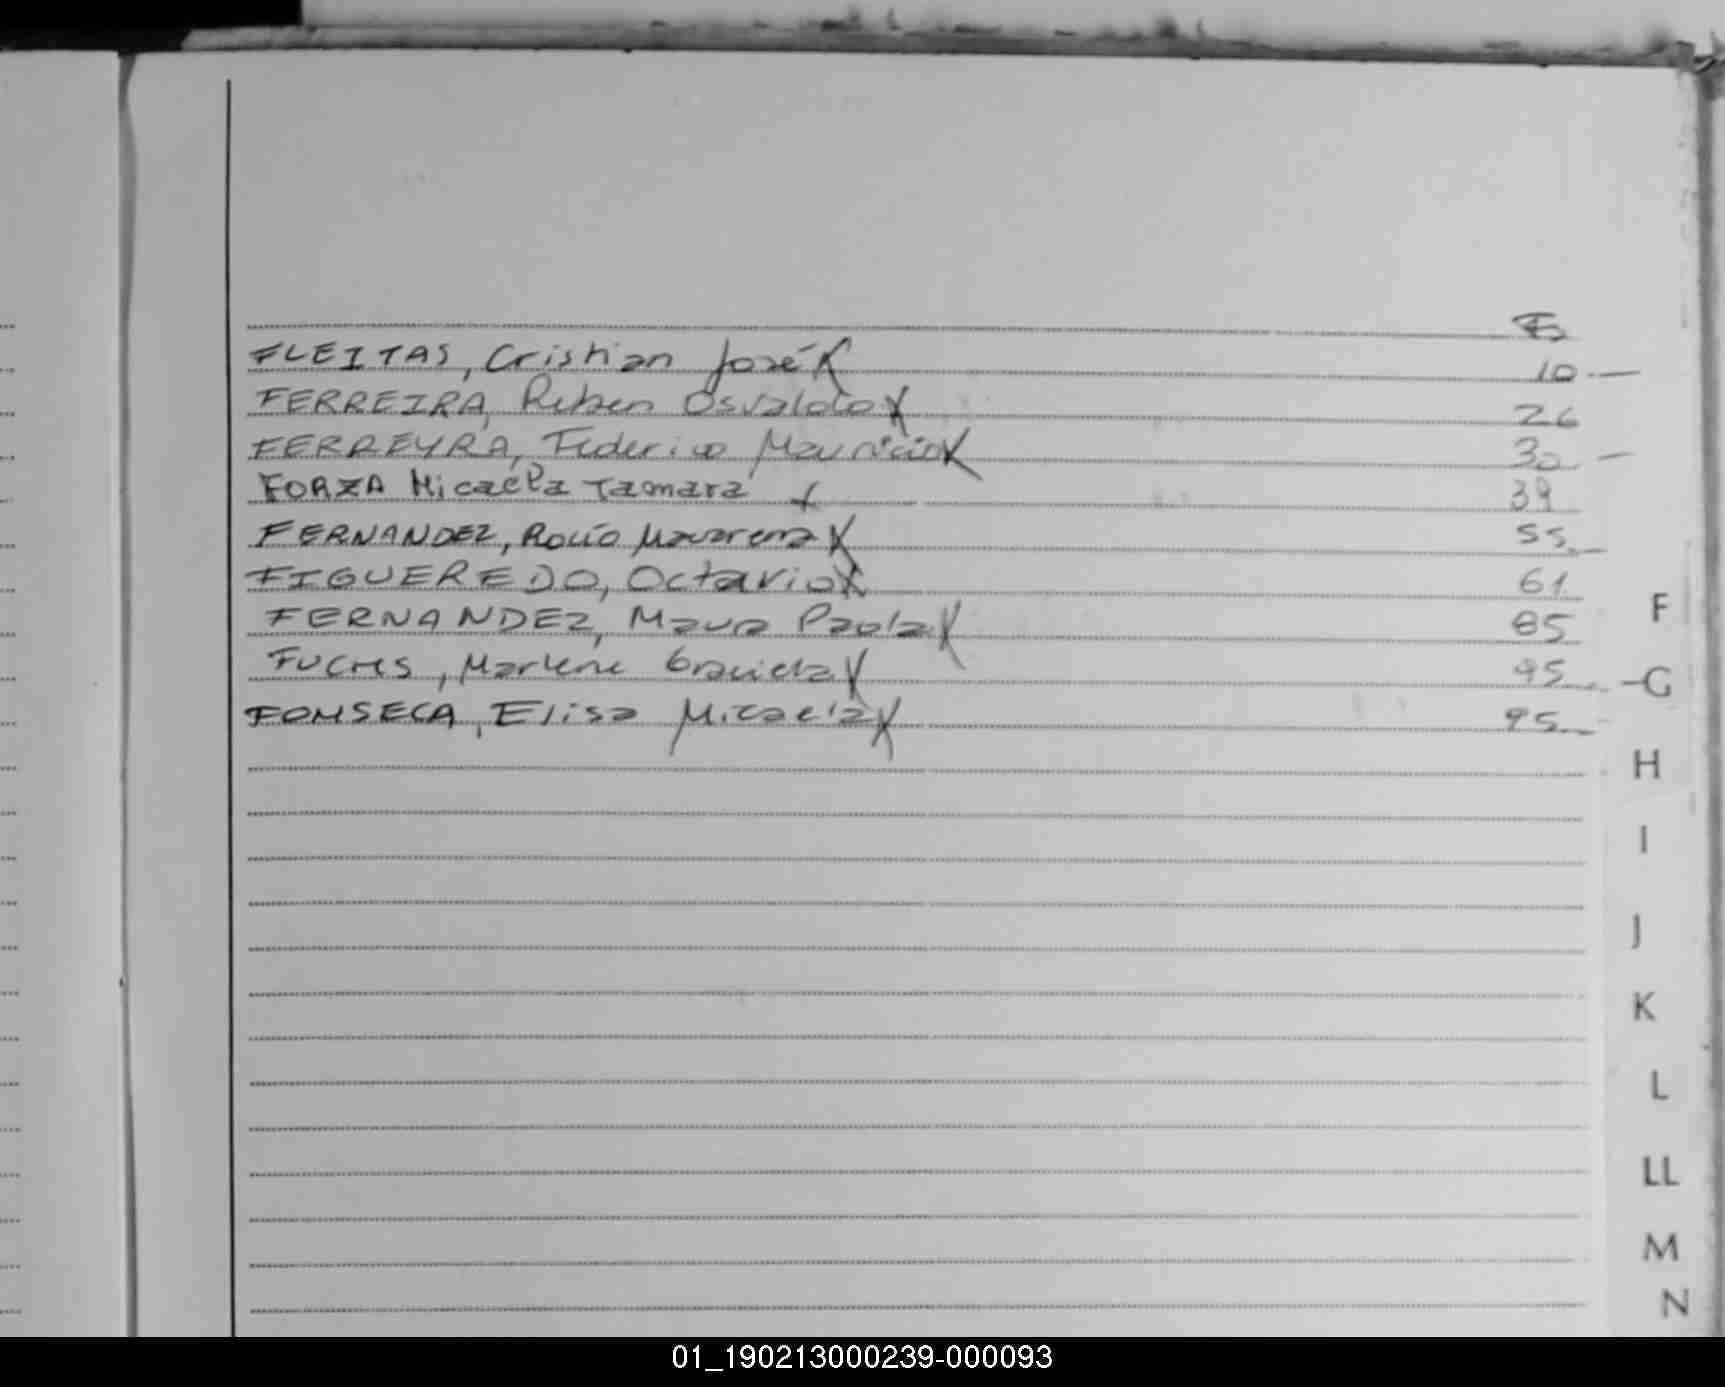 Fº
FLEITAS, Cristian José X 10.-
FERREIRA, Ruben Osvaldo X 26
FERREYRA, Federico Mauricio X 30 -
FORZA Micaela Tamara X 39
FERNANDEZ, Rocío Macarena X 55.-
FIGUEREDO, Octavio X 61
FERNANDEZ, Maura Paola X 85
FUCHS, Marlene Graciela X 95.-
FONSECA, Elisa Micaela X 95.-
F
G
H
I
J
K
L
LL
M
N
01_190213000239-000093